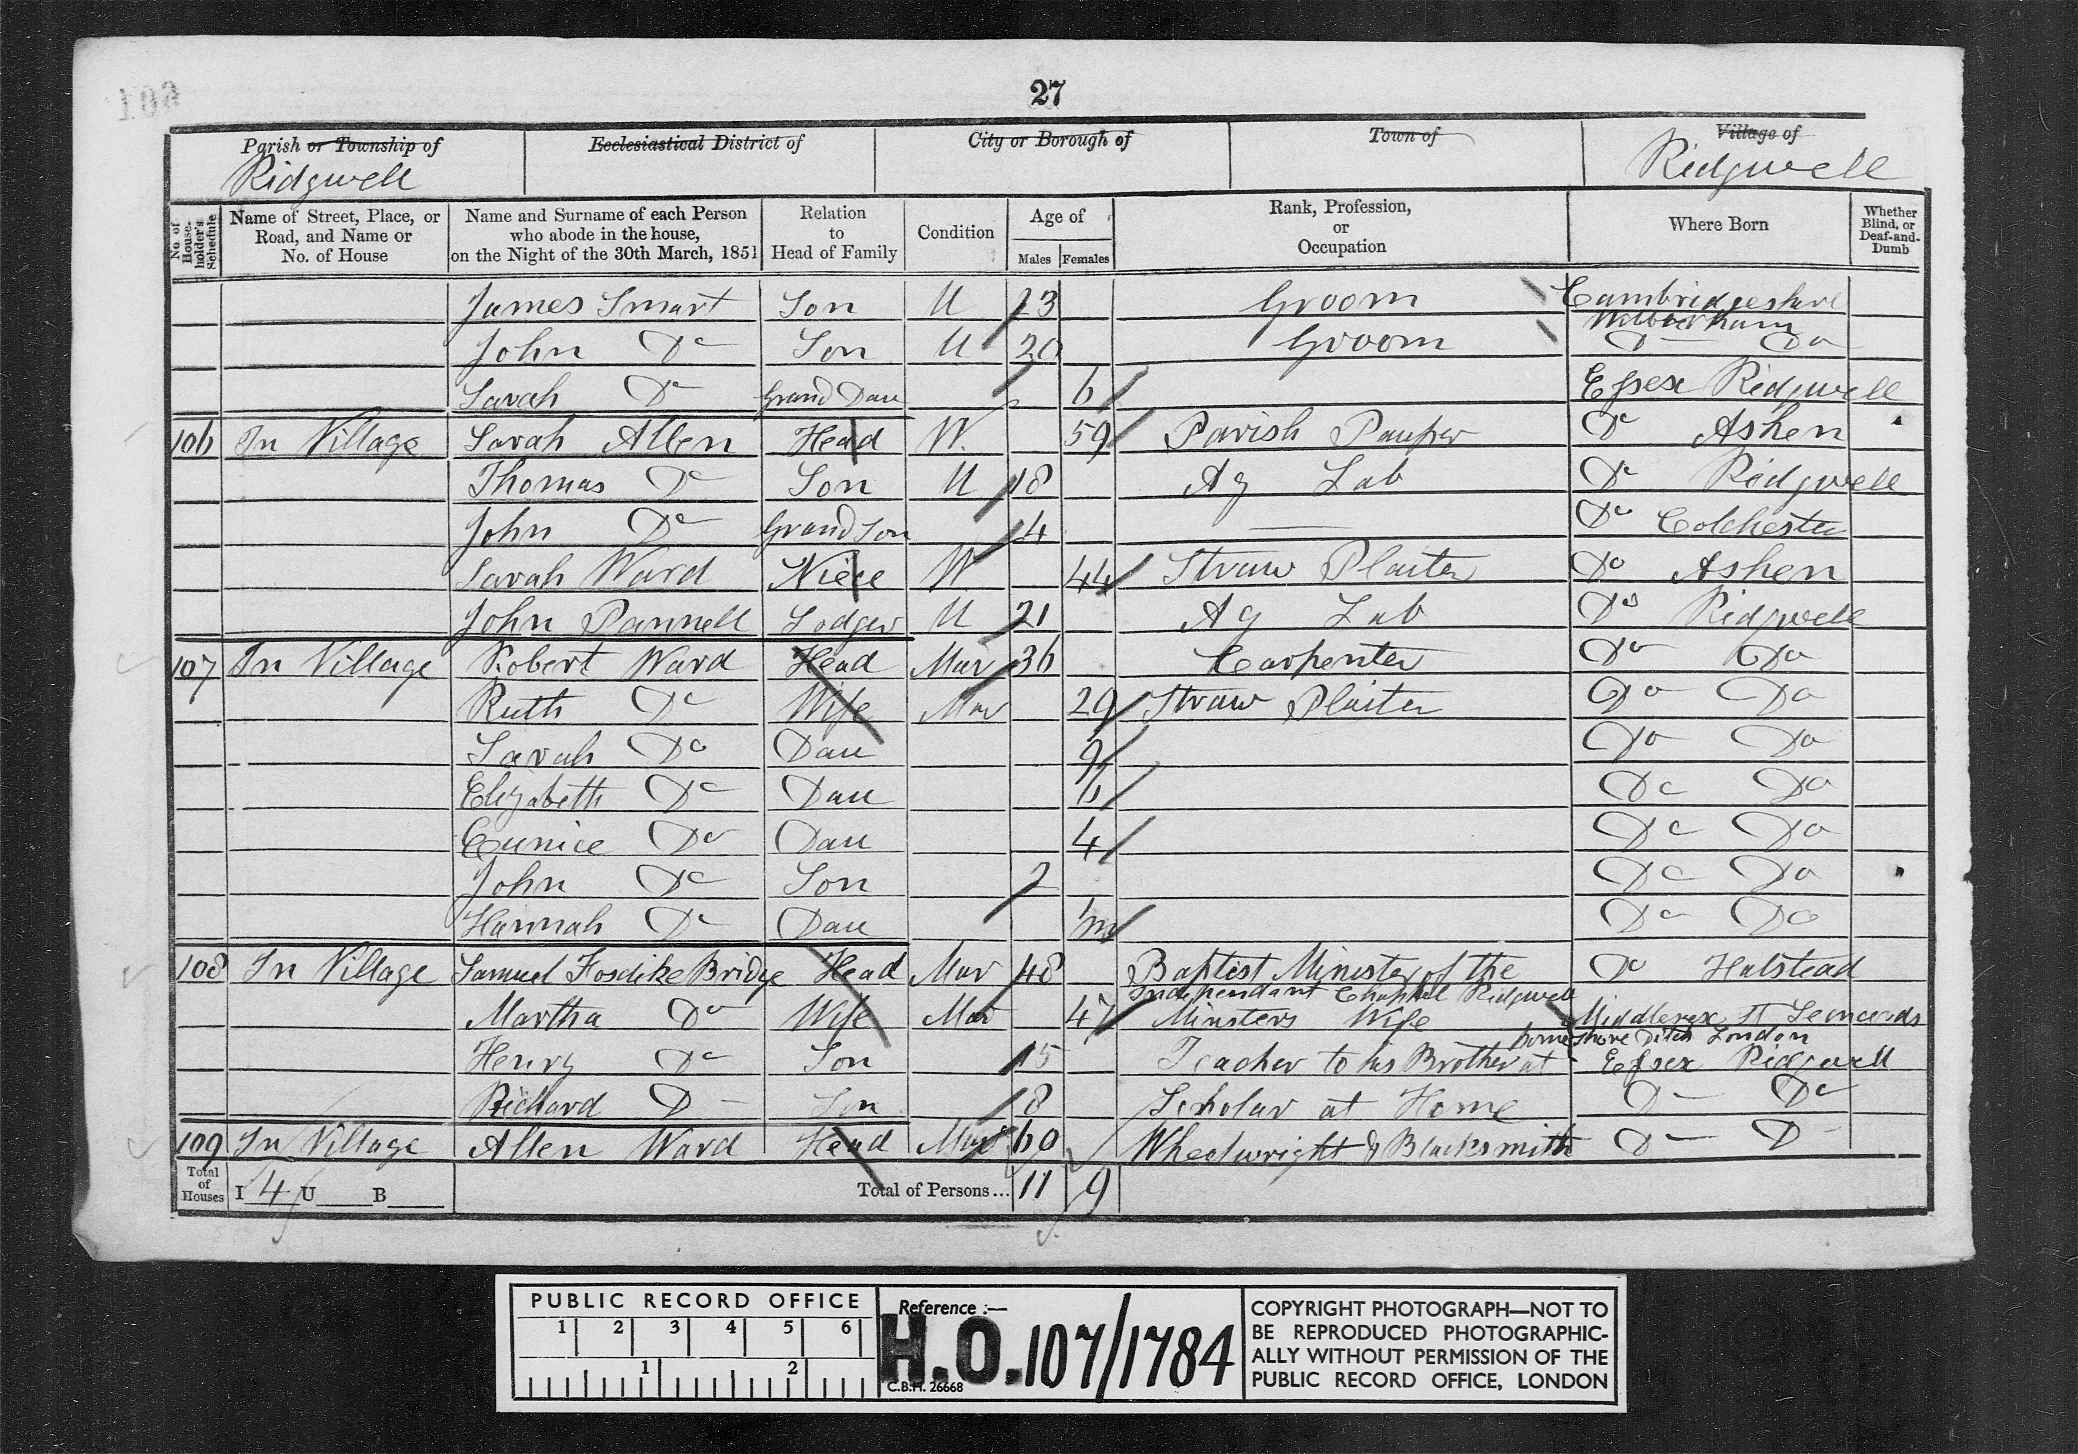 27
Parish or Township of Ecclesiastical District of City or Borough of Town of Village of
Ridgwell Ridgwell
No. of House-holder's Schedule Name of Street, Place, or Road, and Name or No. of House Name and Surname of each Person who abode in the house, on the Night of the 30th March, 1851 Relation to Head of Family Condition Age of Males Females Rank, Profession, or Occupation Where Born Whether Blind, or Deaf-and-Dumb
James Smart Son U 23 Groom Cambridgeshire
Wilberham
John Do Son U 20 Groom Do Do
Sarah Do Grand Dau 6 Essex Ridgwell
106 In Village Sarah Allen Head W. 59 Parish Pauper Do Ashen
Thomas Do Son U 18 Ag Lab Do Ridgwell
John Do Grand Son 4 — Do Colchester
Sarah Ward Niece W 44 Straw Plaiter Do Ashen
John Pannell Lodger U 21 Ag Lab Do Ridgwell
107 In Village Robert Ward Head Mar 36 Carpenter Do Do
Ruth Do Wife Mar 29 Straw Plaiter Do Do
Sarah Do Dau 9 Do Do
Elizabeth Do Dau 6 Do Do
Eunice Do Dau 4 Do Do
John Do Son 2 Do Do
Hannah Do Dau 1m Do Do
108 In Village Samuel Fosdike Bridge Head Mar 48 Baptist Minister of the Do Halstead
Independant Chappel Ridgwell
Martha Do Wife Mar 47 Minsters Wife Middlesex St Leonards
Shore Ditch London
Henry Do Son 15 Teacher to his Brother at home Essex Ridgwell
Richard D— Son 8 Scholar at Home D— Do
109 In Village Allen Ward Head Mar 60 Wheelwright & Blacksmith D— D—
Total of Houses I 4 U B Total of Persons... 11 9
PUBLIC RECORD OFFICE
1 2 3 4 5 6
1 2
Reference :—
H.O. 107/1784
C.B.H. 26668
COPYRIGHT PHOTOGRAPH—NOT TO
BE REPRODUCED PHOTOGRAPHIC-
ALLY WITHOUT PERMISSION OF THE
PUBLIC RECORD OFFICE, LONDON